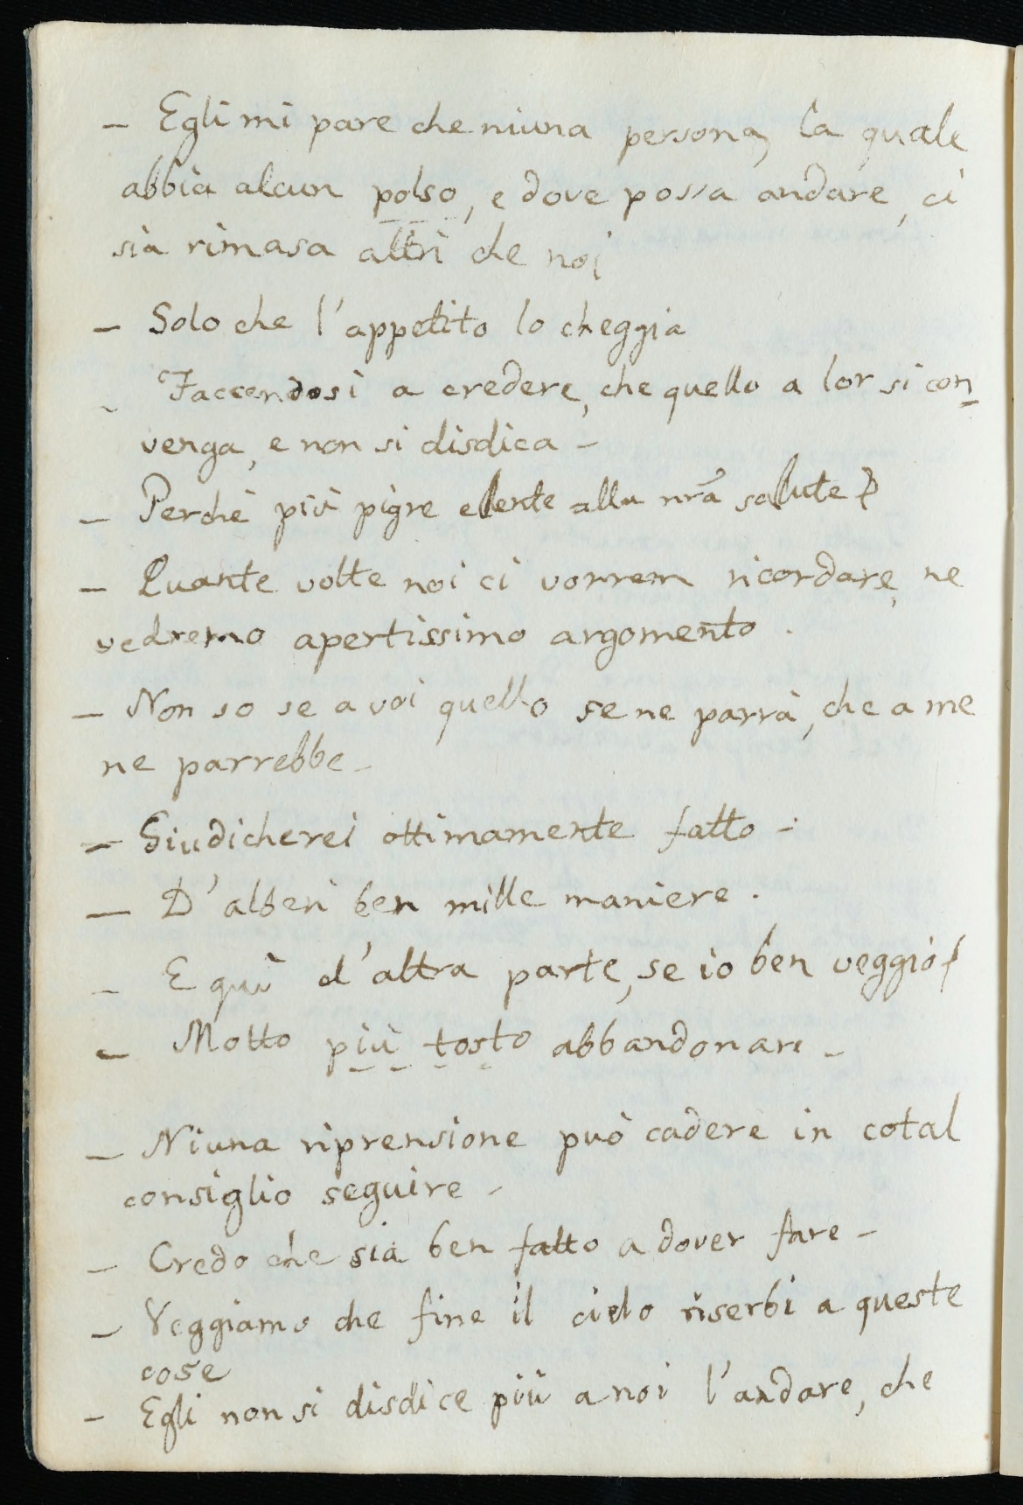 – Egli mi pare che niuna persona, la quale
abbia alcun polso, e dove possa andare, ci
sia rimasa altri che noi
– Solo che l'appetito lo cheggia
– Faccendosi a credere, che quello a lor si con
venga, e non si disdica –
– Perchè più pigre e lente alla nrã salute
– Quante volte noi ci vorrem ricordare, ne
vedremo apertissimo argomento .
– Non so se a voi quello se ne parrà, che a me
ne parrebbe –
– Giudicherei ottimamente fatto –
– D'alberi ben mille maniere .
– E quì d'altra parte, se io ben veggio
– Molto più tosto abbandonare –
– Niuna riprensione può cadere in cotal
consiglio seguire –
– Credo che sia ben fatto a dover fare –
– Veggiamo che fine il cielo riserbi a queste
cose
– Egli non si disdice più a noi l'andare, che